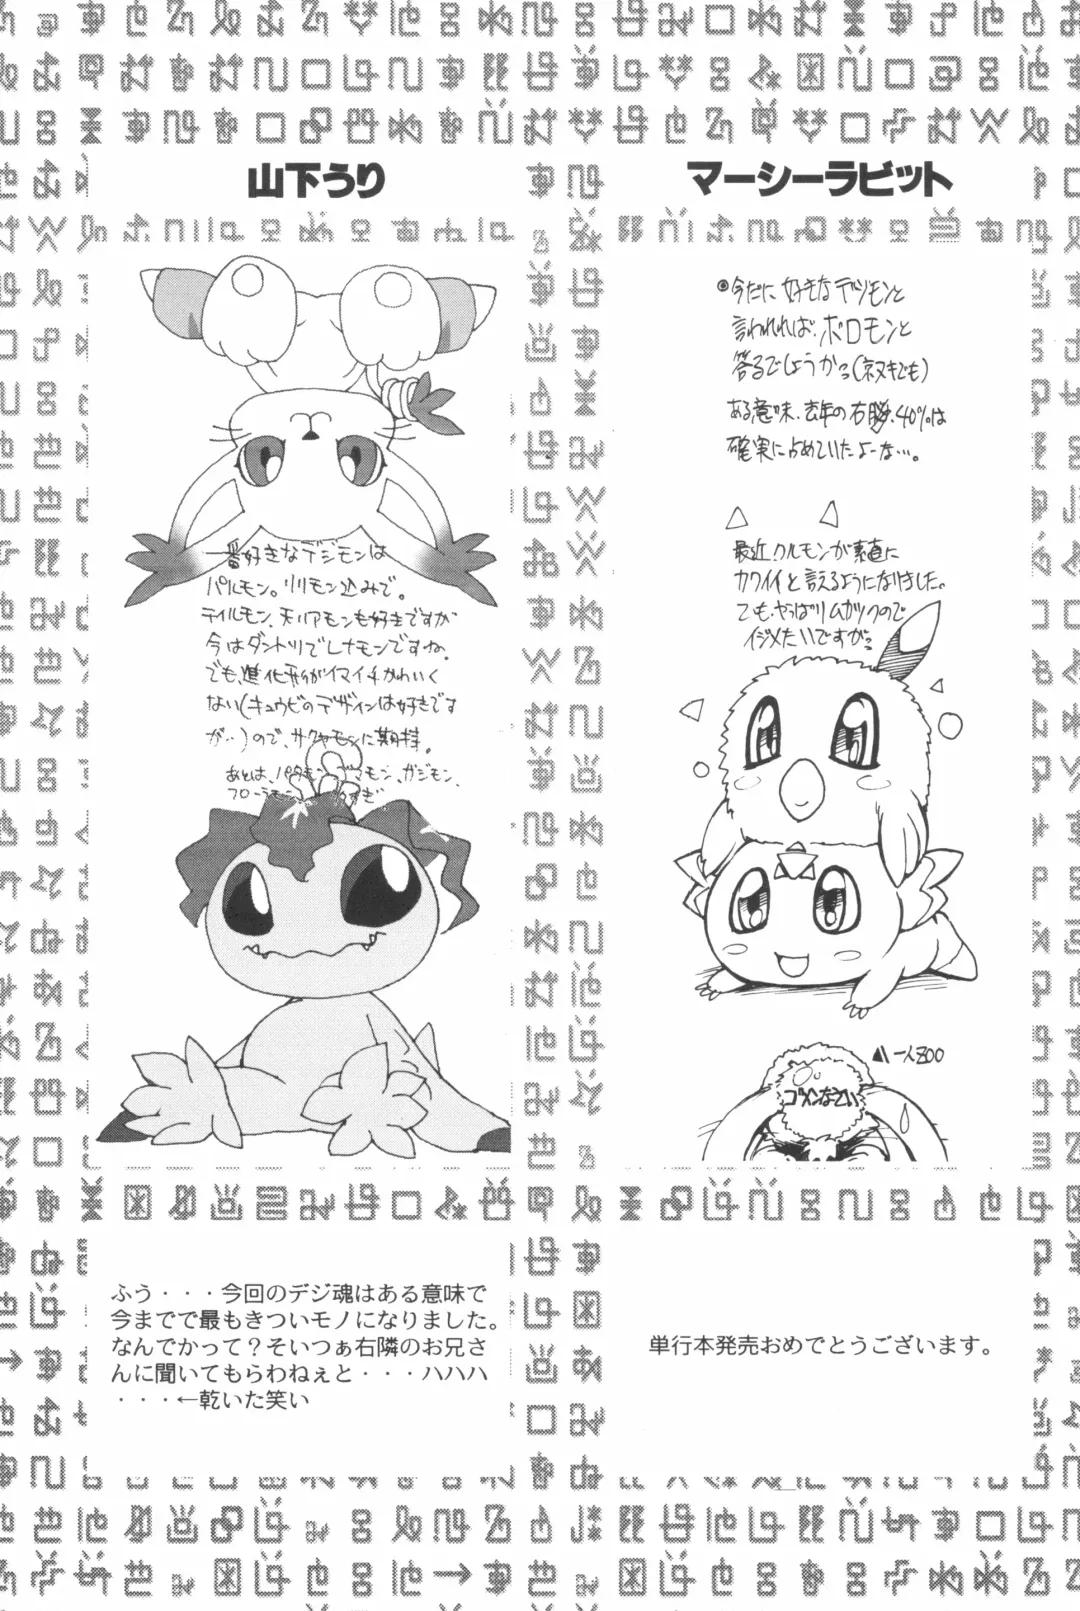 山下うり
一番好きなデジモンは
パルモン。リリモン込みで。
テイルモン、
モンも好きですが
今はダントツでレナモンですね。
でも、進化形がイマイチかわいく
ない(キュウビのデザインは好きです
が‥)ので、サクヤモンに期待。
あとは、パタモン、
マモン、ガジモン、
フローラモン
ふう・・・今回のデジ魂はある意味で
今までで最もきついモノになりました。
なんでかって？そいつぁ右隣のお兄さ
んに聞いてもらわねぇと・・・ハハハ
・・・←乾いた笑い
マーシーラビット
◎今だに好きなデジモンと
言われれば、ポロモンと
答るでしょうか?(ネタキでも)
ある意味、去年の右腕、40%は
確実に占めていたよーな…。
最近、クルモンが素直に
カワイイと言えるようになりました。
でも、やっぱりムカツクので
イジメたいですが?
一人ZOO
ゴメンなさい
単行本発売おめでとうございます。